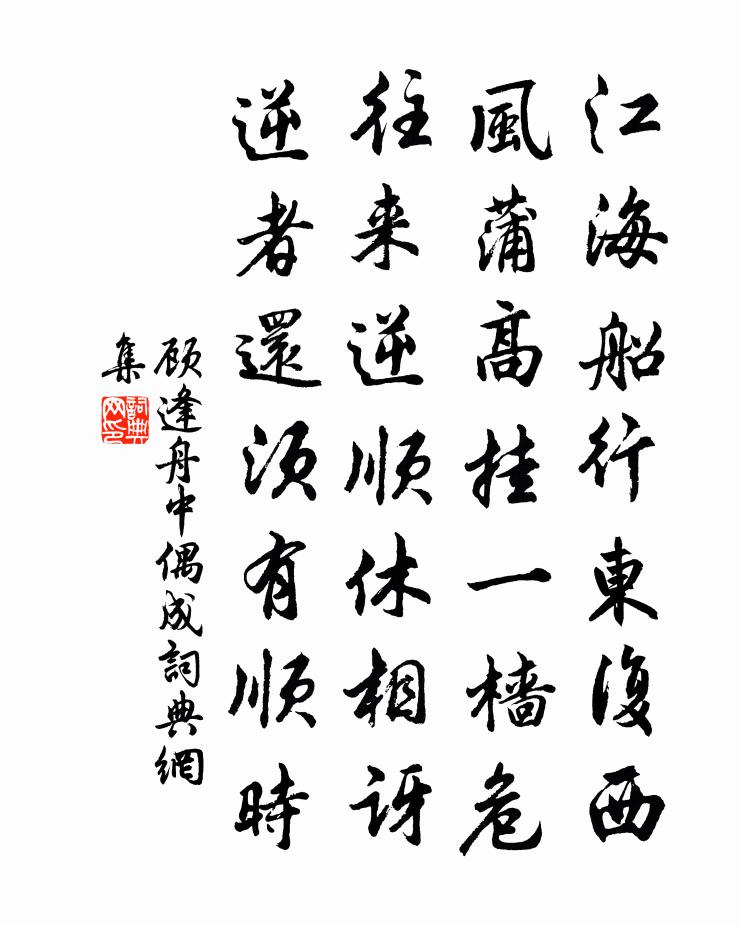 江海船行東復西
風蒲高挂一檣危
往来逆順休相訝
逆者還須有順時
顾逢舟中偶成詞典網
集
詞典网印